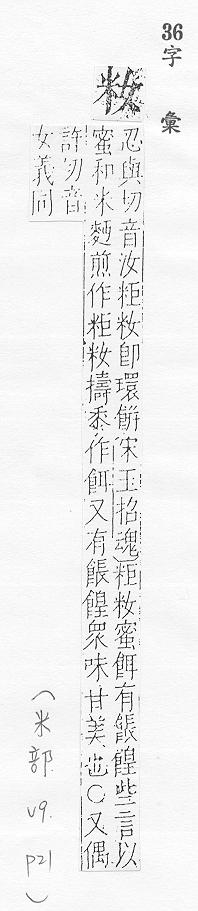 36字彙
籹
忍與切音汝粔籹卽環餠宋玉招魂粔籹蜜餌有餦餭些言以
蜜和米麪煎作粔籹擣黍作餌又有餦餭衆味甘美也○又偶
許切音
女義同
(米部 v9. p21)